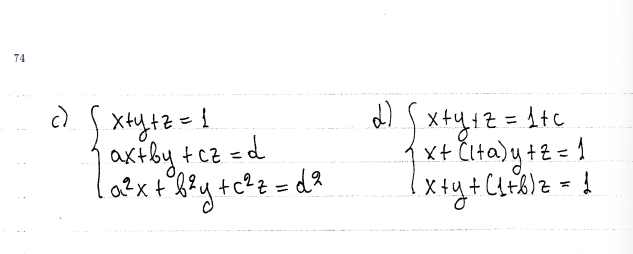 74
c) { x+y+z = 1
ax+by+cz = d
a²x+b²y+c²z = d²
d) { x+y+z = 1+c
x+(1+a)y+z = 1
x+y+(1+b)z = 1